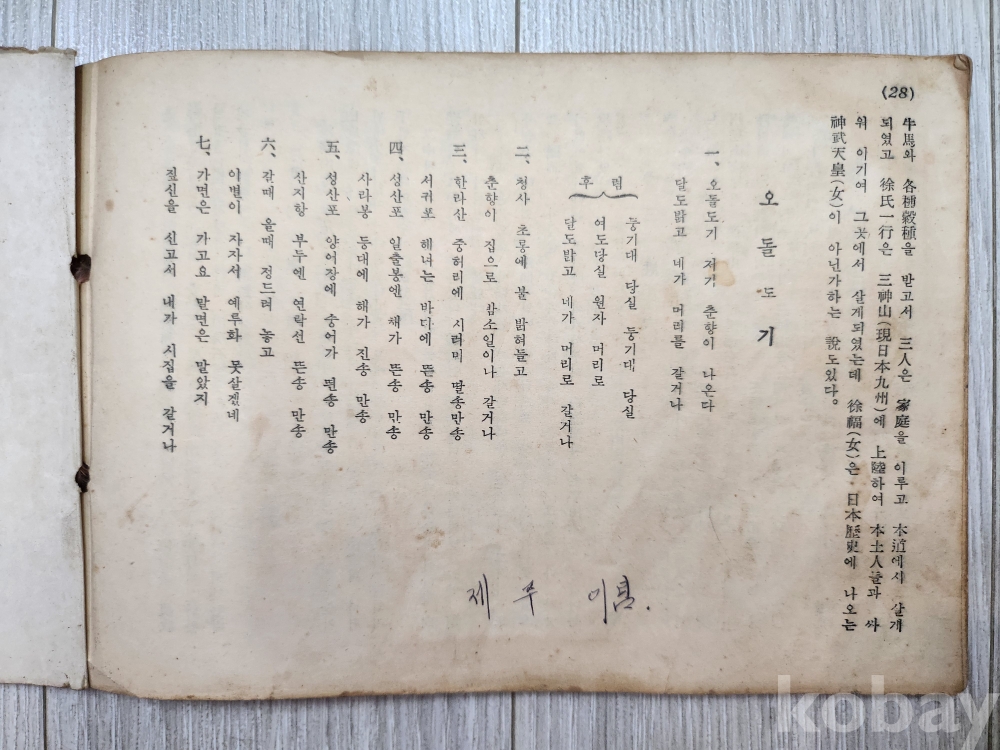 (28)
牛馬와 各種穀種을 받고서 三人은 家庭을 이루고 本道에서 살게
되였고 徐氏一行은 三神山(現日本九州)에 上陸하여 本土人들과 싸
워 이기여 그곳에서 살게되였는데 徐福(女)은 日本歷史에 나오는
神武天皇(女)이 아닌가하는 說도있다。
오돌도기
一、 오돌도기 저기 춘향이 나온다
달도밝고 네가 머리를 갈거나
후렴
둥기대 당실 둥기대 당실
여도당실 원자 머리로
달도밝고 네가 머리로 갈거나
二、 청사 초롱에 불 밝혀들고
춘향이 집으로 밤소일이나 갈거나
三、 한라산 중허리에 시러미 딸송만송
서귀포 해녀는 바다에 뜬송 만송
四、 성산포 일출봉엔 채가 뜬송 만송
사라봉 등대에 해가 진송 만송
五、 성산포 양어장에 숭어가 뛴송 만송
산지항 부두엔 연락선 뜬송 만송
六、 갈때 올때 정드려 놓고
이별이 자자서 예루화 못살겠네
七、 가면은 가고요 말면은 말았지
짚신을 신고서 내가 시집을 갈거나
제주
kobay